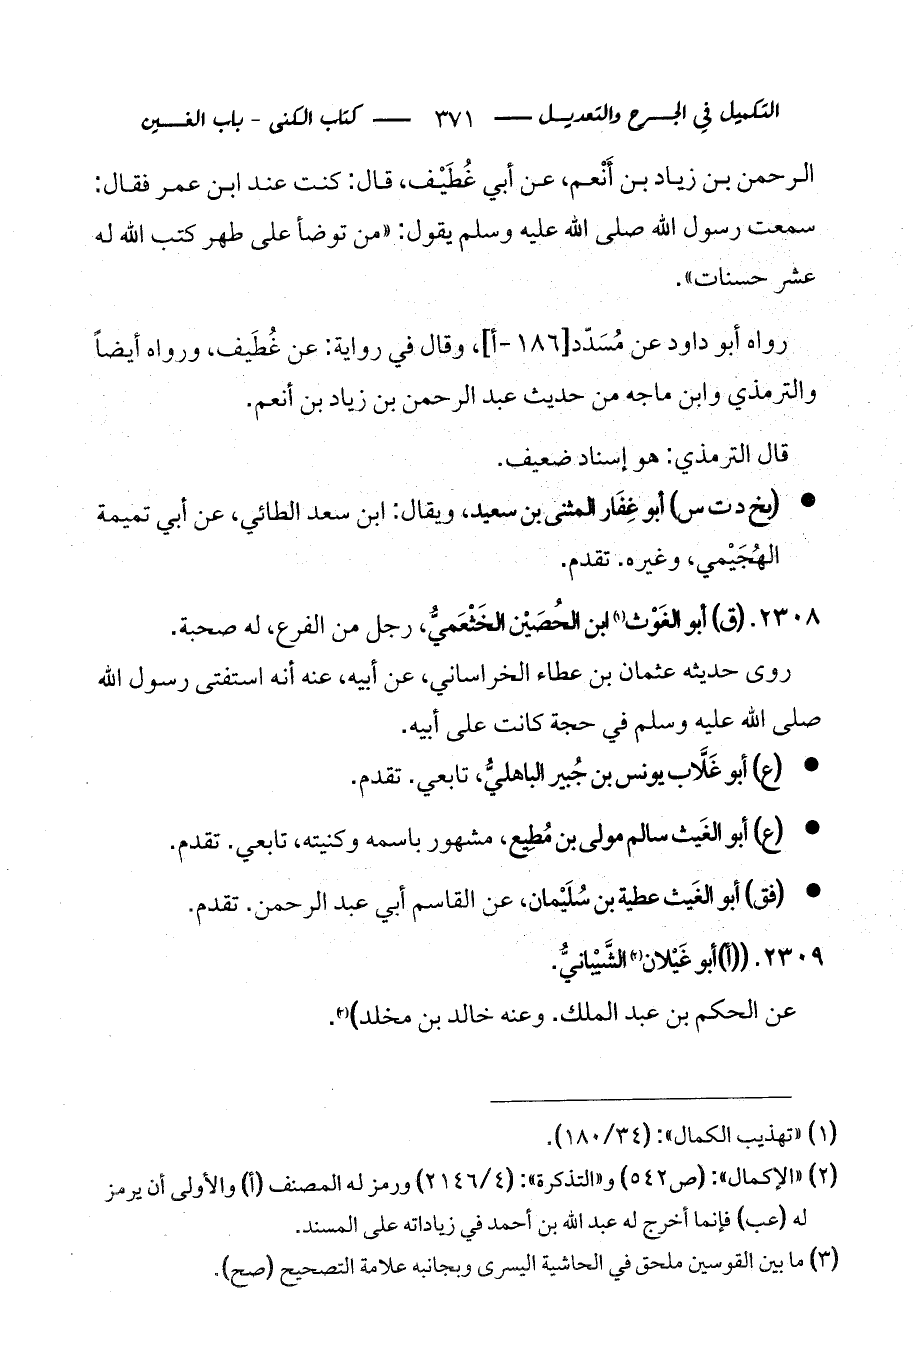 التكميل في الجرح والتعديل — ٣٧١ — كتاب الكنى - باب الغين
الرحمن بن زياد بن أَنْعم، عن أبي غُطَيْف، قال: كنت عند ابن عمر فقال:
سمعت رسول الله صلى الله عليه وسلم يقول: «من توضأ على طهر كتب الله له
عشر حسنات».
رواه أبو داود عن مُسَدّد[١٨٦-أ]، وقال في رواية: عن غُطَيف، ورواه أيضاً
والترمذي وابن ماجه من حديث عبد الرحمن بن زياد بن أنعم.
قال الترمذي: هو إسناد ضعيف.
● (بخ د ت س) أبو غِفَار المثنى بن سعيد، ويقال: ابن سعد الطائي، عن أبي تميمة
الهُجَيْمي، وغيره. تقدم.
٢٣٠٨. (ق) أبو الغَوْث(١) ابن الحُصَيْن الخَثْعَميُّ، رجل من الفرع، له صحبة.
روى حديثه عثمان بن عطاء الخراساني، عن أبيه، عنه أنه استفتى رسول الله
صلى الله عليه وسلم في حجة كانت على أبيه.
● (ع) أبو غَلَّاب يونس بن جُبير الباهليُّ، تابعي. تقدم.
● (ع) أبو الغَيث سالم مولى بن مُطِيع، مشهور باسمه وكنيته، تابعي. تقدم.
● (فق) أبو الغَيث عطية بن سُلَيْمان، عن القاسم أبي عبد الرحمن. تقدم.
٢٣٠٩. ((أ)أبو غَيْلان(٢) الشَّيْبانيُّ.
عن الحكم بن عبد الملك. وعنه خالد بن مخلد)(٣).
(١) «تهذيب الكمال»: (١٨٠/٣٤).
(٢) «الإكمال»: (ص٥٤٢) و«التذكرة»: (٢١٤٦/٤) ورمز له المصنف (أ) والأولى أن يرمز
له (عب) فإنما أخرج له عبد الله بن أحمد في زياداته على المسند.
(٣) ما بين القوسين ملحق في الحاشية اليسرى وبجانبه علامة التصحيح (صح).